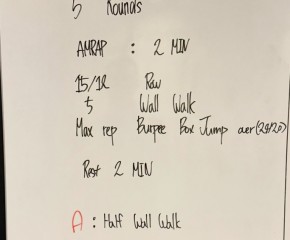 5 Rounds
AMRAP : 2 MIN
15/12 Row
5 Wall Walk
Max rep Burpee Box Jump over (24/20)
Rest 2 MIN
A : Half Wall Walk